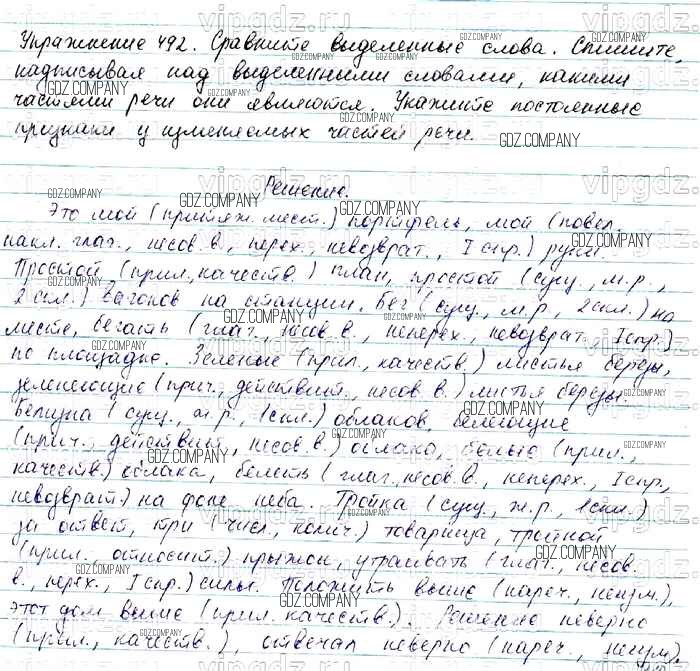 Упражнение 492. Сравните выделенные слова. Спишите,
надписывая над выделенными словами, какими
частями речи они являются. Укажите постоянные
признаки у изменяемых частей речи.
Решение.
Это мой (притяж. мест.) портфель, мой (повел.
накл. глаг., несов. в., перех., невозврат., I спр.) руки.
Простой (прил., качеств.) план, простой (сущ., м.р.,
2 скл.) вагонов на станции. Бег (сущ., м.р., 2 скл.) на
месте, бегать (глаг., несов. в., неперех., невозврат., I спр.)
по площадке. Зеленые (прил., качеств.) листья березы,
зеленеющие (прич., действит., несов. в.) листья березы.
Белизна (сущ., ж.р., 1 скл.) облаков, белеющие
(прич., действит., несов. в.) облака, белые (прил.,
качеств.) облака, белеть (глаг. несов. в., неперех., I спр.,
невозврат.) на фоне неба. Тройка (сущ., ж.р., 1 скл.)
за ответ, три (числ., колич.) товарища, тройной
(прил., относит.) прыжок, утраивать (глаг., несов.
в., перех., I спр.) силы. Положить выше (нареч., неизм.),
этот дом выше (прил. качеств.). Решение неверно
(прил., качеств.), отвечал неверно (нареч., неизм.)